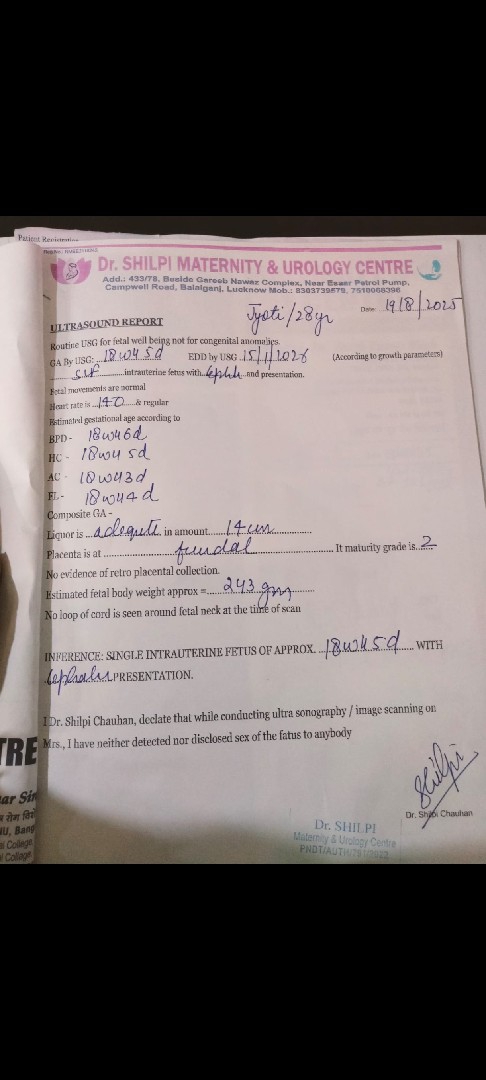 Patient Registration
Dr. SHILPI MATERNITY & UROLOGY CENTRE
Add.: 433/78, Beside Gareeb Nawaz Complex, Near Essar Petrol Pump,
Campwell Road, Balaganj, Lucknow Mob.: 8303729579, 7518066396
Jyoti/28yr Date 19/8/2025
ULTRASOUND REPORT
Routine USG for fetal well being not for congenital anomalies.
GA By USG: 18w4 5d EDD by USG 15/1/2026 (According to growth parameters)
intrauterine fetus with and presentation.
Fetal movements are normal
Heart rate is 140 & regular
Estimated gestational age according to
BPD - 18w46d
HC - 18w4 5d
AC - 18w43d
FL - 18w44d
Composite GA -
Liquor is adequte in amount 14cm
Placenta is at fundal It maturity grade is 2
No evidence of retro placental collection.
Estimated fetal body weight approx = 243 gm
No loop of cord is seen around fetal neck at the time of scan
INFERENCE: SINGLE INTRAUTERINE FETUS OF APPROX. 18w4 5d WITH
PRESENTATION.
I Dr. Shilpi Chauhan, declate that while conducting ultra sonography / image scanning on
Mrs., I have neither detected nor disclosed sex of the fatus to anybody
Shilpi
Dr. Shilpi Chauhan
Dr. SHILPI
Maternity & Urology Centre
PNDT/AUTH/781/2022
TRE
ar Sin
IU, Bang
College
College